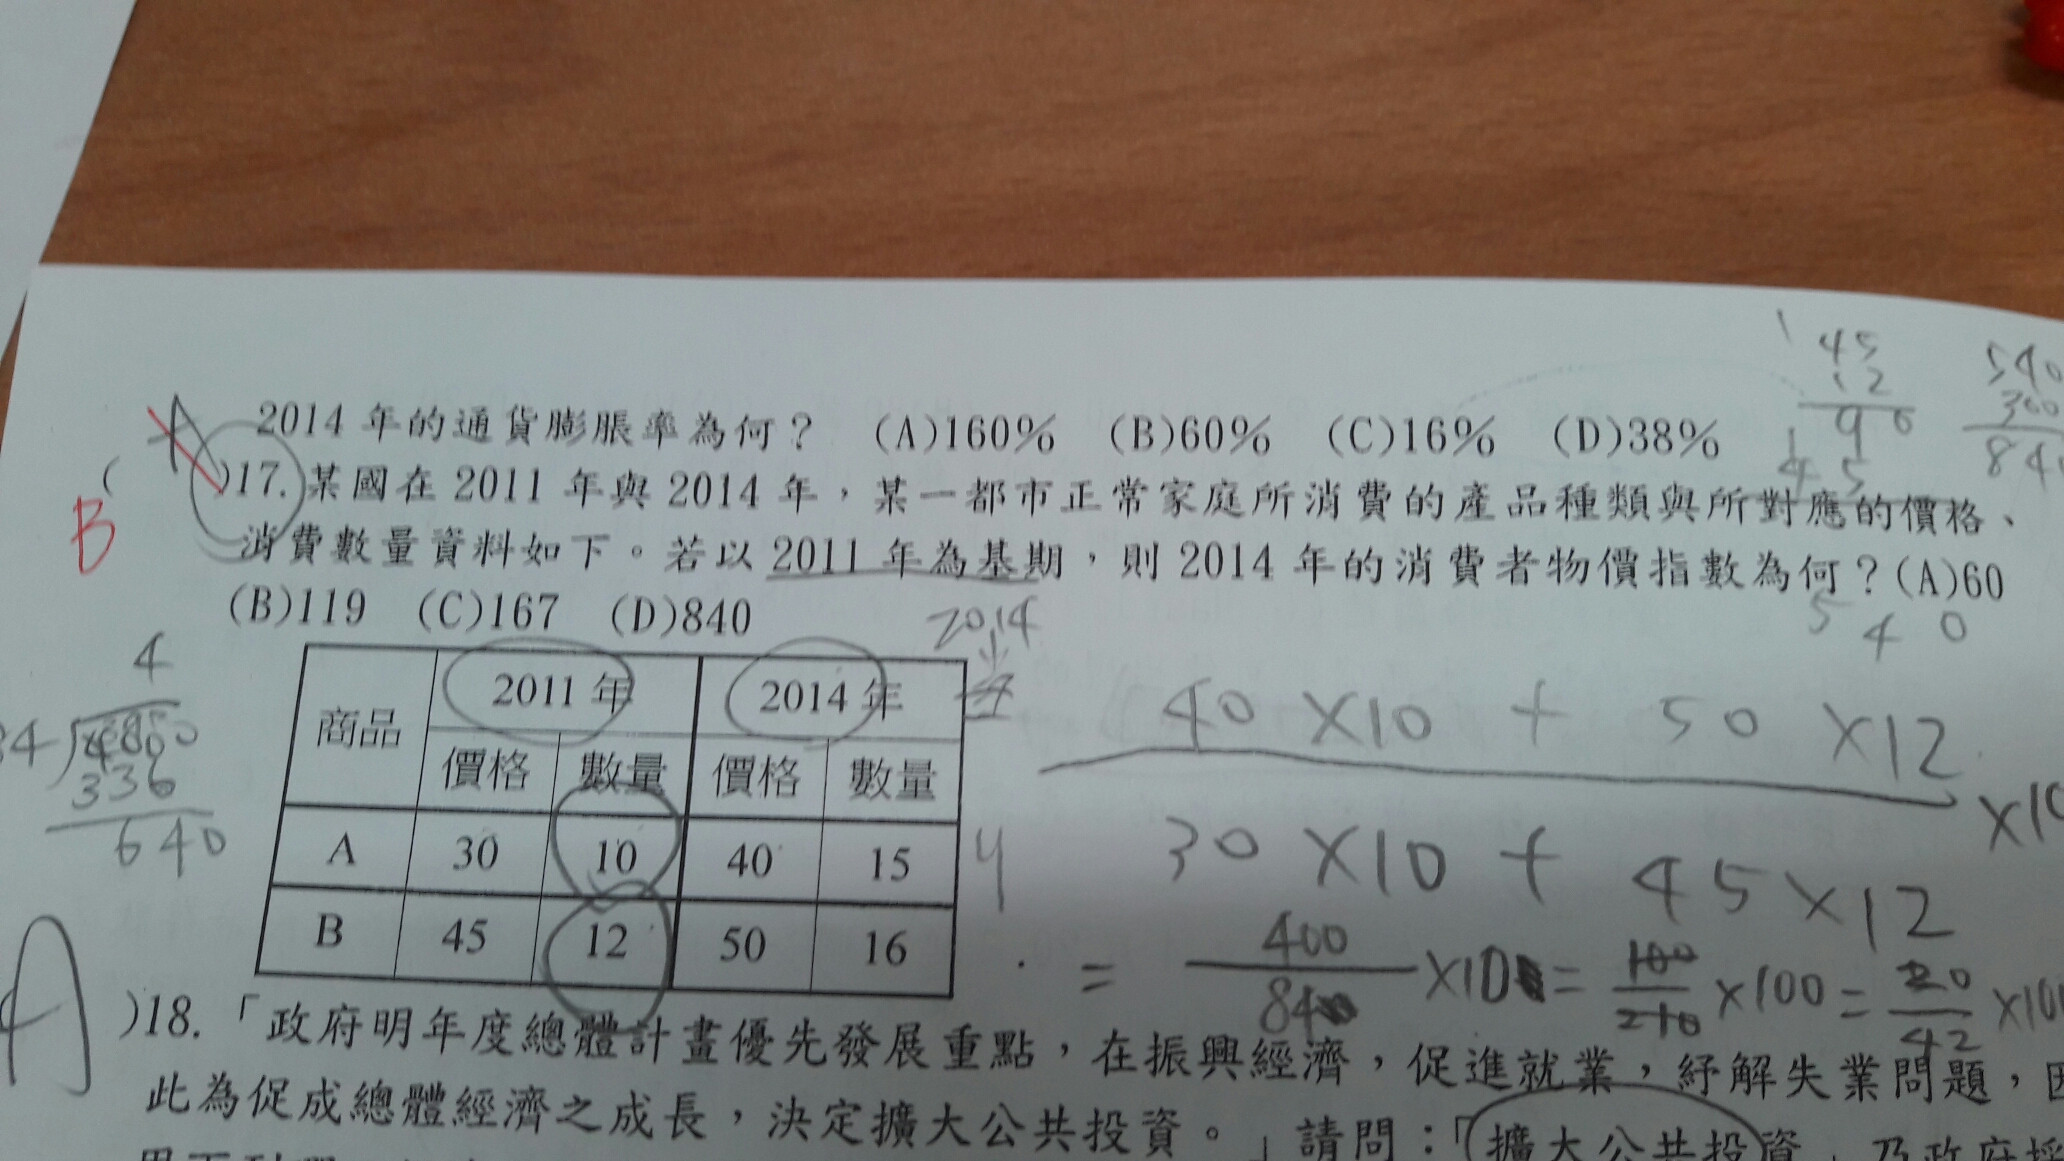 2014年的通貨膨脹率為何？ (A)160% (B)60% (C)16% (D)38%
A
( )17.某國在2011年與2014年，某一都市正常家庭所消費的產品種類與所對應的價格、
B
消費數量資料如下。若以2011年為基期，則2014年的消費者物價指數為何？(A)60
(B)119 (C)167 (D)840
商品 2011年 2014年
價格 數量 價格 數量
A 30 10 40 15
B 45 12 50 16
45
12
90
45
540
540
300
840
2014
40×10 + 50×12
30×10 + 45×12
= 400/840 ×100 = 100/210 ×100 = 20/42 ×100
4
336
640
A
)18.「政府明年度總體計畫優先發展重點，在振興經濟，促進就業，紓解失業問題，因
此為促成總體經濟之成長，決定擴大公共投資。」請問：「擴大公共投資」乃政府採